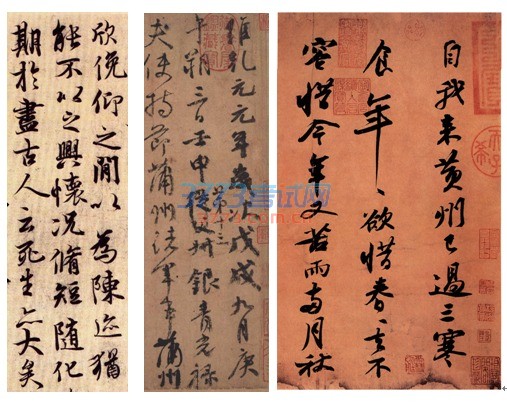 欣俛仰之閒以為陳迹猶
能不以之興懷况脩短随化
期於盡古人云死生亦大矣
維乾元元年歲次戊戌九月庚
午朔三日壬申第十三叔銀青光禄
夫使持節蒲州諸軍事蒲州
自我来黄州已過三寒
食年、欲惜春、去不
容惜今年又苦雨兩月秋
考试网